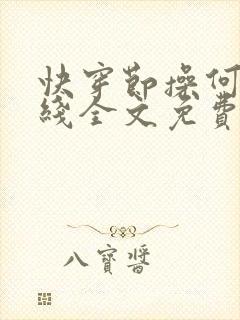 快穿節操何
綫全文免費
八寶醬